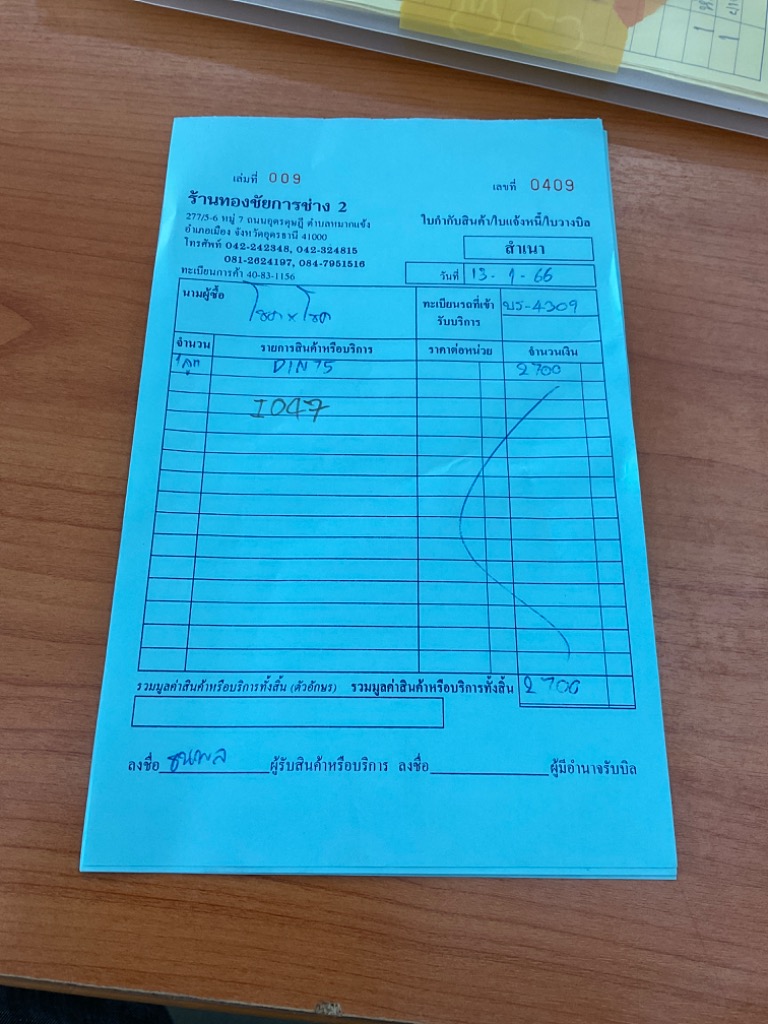 เล่มที่ 009
เลขที่ 0409
ร้านทองชัยการช่าง 2
277/5-6 หมู่ 7 ถนนอุดรดุษฎี ตำบลหมากแข้ง
อำเภอเมือง จังหวัดอุดรธานี 41000
โทรศัพท์ 042-242348, 042-324815
081-2624197, 084-7951516
ทะเบียนการค้า 40-83-1156
ใบกำกับสินค้า/ใบแจ้งหนี้/ใบวางบิล
สำเนา
วันที่ 13-1-66
นามผู้ซื้อ โชค x โชค
ทะเบียนรถที่เข้ารับบริการ บร-4309
จำนวน รายการสินค้าหรือบริการ ราคาต่อหน่วย จำนวนเงิน
1 ลูก DIN 75 2700
I047
รวมมูลค่าสินค้าหรือบริการทั้งสิ้น (ตัวอักษร) รวมมูลค่าสินค้าหรือบริการทั้งสิ้น 2700
ลงชื่อ ธนพล ผู้รับสินค้าหรือบริการ ลงชื่อ ผู้มีอำนาจรับบิล